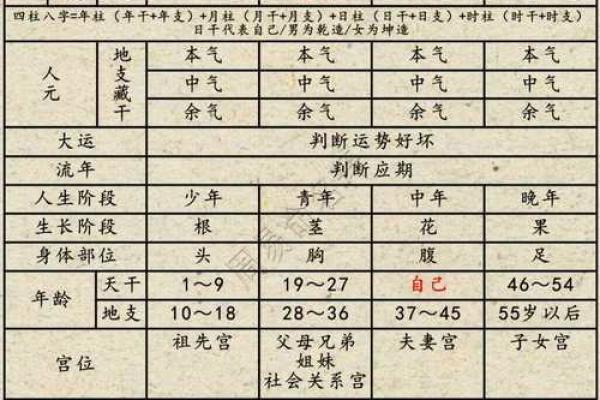 四柱八字=年柱（年干+年支）+月柱（月干+月支）+日柱（日干+日支）+时柱（时干+时支）
日干代表自己/男为乾造/女为坤造
人元 地支藏干 本气 本气 本气 本气
中气 中气 中气 中气
余气 余气 余气 余气
大运 判断运势好坏
流年 判断应期
人生阶段 少年 青年 中年 晚年
生长阶段 根 茎 花 果
身体部位 头 胸 腹 足
年龄 天干 1～9 19～27 自己 46～54
地支 10～18 28～36 37～45 55岁以后
宫位 祖先宫 父母兄弟 夫妻宫 子女宫
姐妹
社会关系宫